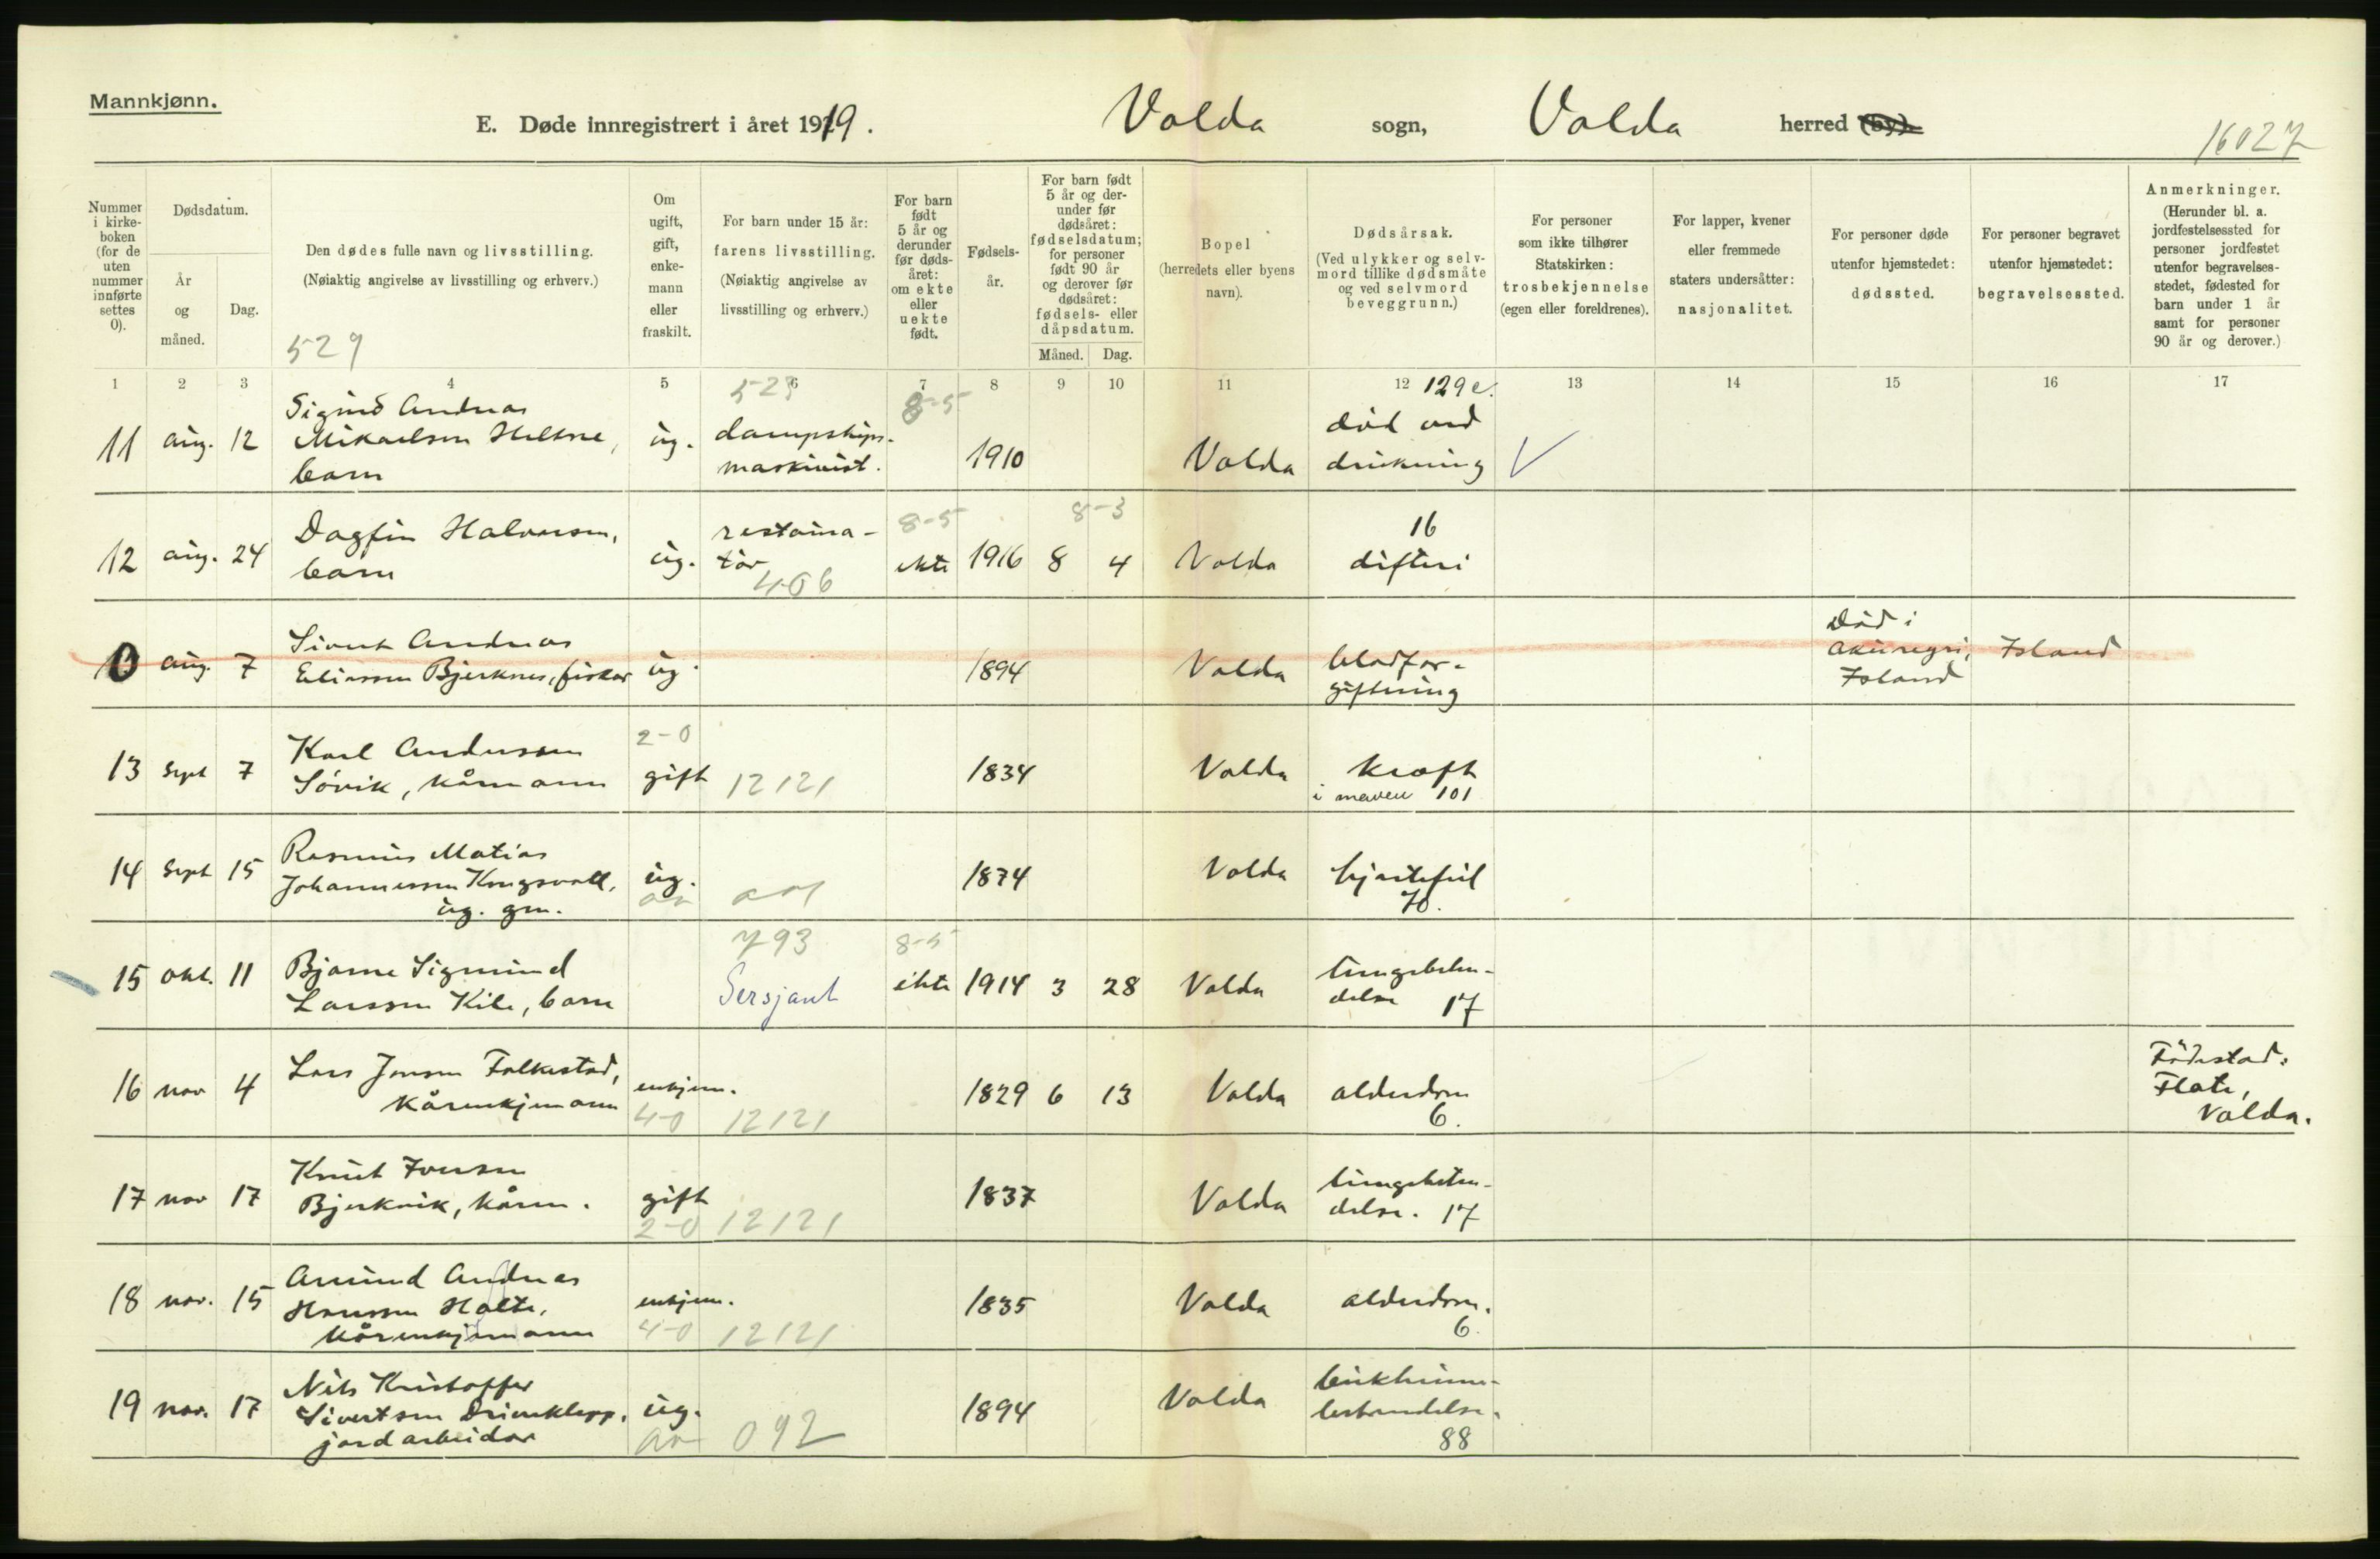 Mannkjønn.
E. Døde innregistrert i året 1919.
Volda sogn, Volda herred (by).
16027
Nummer i kirke-boken (for de uten nummer innførte settes 0).
Dødsdatum.
År og måned.
Dag.
Den dødes fulle navn og livsstilling.
(Nøiaktig angivelse av livsstilling og erhverv.)
529
Om ugift, gift, enke-mann eller fraskilt.
For barn under 15 år:
farens livsstilling.
(Nøiaktig angivelse av livsstilling og erhverv.)
For barn født 5 år og derunder før døds-året: om ekte eller uekte født.
Fødsels-år.
For barn født 5 år og der-under før dødsåret: fødselsdatum; for personer født 90 år og derover før dødsåret: fødsels- eller dåpsdatum.
Måned. Dag.
Bopel
(herredets eller byens navn).
Dødsårsak.
(Ved ulykker og selv-mord tillike dødsmåte og ved selvmord beveggrunn.)
For personer som ikke tilhører Statskirken:
trosbekjennelse
(egen eller foreldrenes).
For lapper, kvener eller fremmede staters undersåtter:
nasjonalitet.
For personer døde utenfor hjemstedet:
dødssted.
For personer begravet utenfor hjemstedet:
begravelsessted.
Anmerkninger.
(Herunder bl. a. jordfestelsessted for personer jordfestet utenfor begravelses-stedet, fødested for barn under 1 år samt for personer 90 år og derover.)
1 2 3 4 5 6 7 8 9 10 11 12 13 14 15 16 17
523 8-5 129e.
11 aug. 12 Sigurd Andreas Mikaelsen Heltne, barn ug. dampskips-maskinist. 1910 Volda död ved drukning V
12 aug. 24 Dagfin Halvorsen, barn ug. restaura-tör 406 8-5 ekte 1916 8-3 8 4 Volda 16 difteri
0 aug. 7 Sivert Andreas Eliassen Bjerknes, fiskar ug. 1894 Volda blodfor-giftning Död i Akureyri, Island Island
13 Sept 7 Karl Anderssen Sövik, kårmann 2-0 gift 12121 1834 Volda kræft i maven 101
14 Sept 15 Rasmus Matias Johannessen Kongsvoll, ug. gm. ug. 1874 Volda hjertefeil 70.
15 Okt. 11 Bjarne Sigmund Larssen Kile, barn 793 Sersjant 8-5 ekte 1914 3 28 Volda lungebeten-delse 17
16 nov 4 Lars Jonsen Folkestad, kårenkjemann enkjem. 4-0 12121 1829 6 13 Volda alderdom 6. Födestad: Flate, Volda.
17 nov 17 Knut Iversen Bjerkvik, kårm. gift 2-0 12121 1837 Volda lungebeten-delse. 17
18 nov. 15 Amund Andreas Hanssen Holte, kårenkjemann enkjem. 4-0 12121 1835 Volda alderdom. 6.
19 nov. 17 Nils Kristoffer Sivertsen Driveklepp, jordarbeidar ug. 092 1894 Volda bukhinne-betendelse. 88